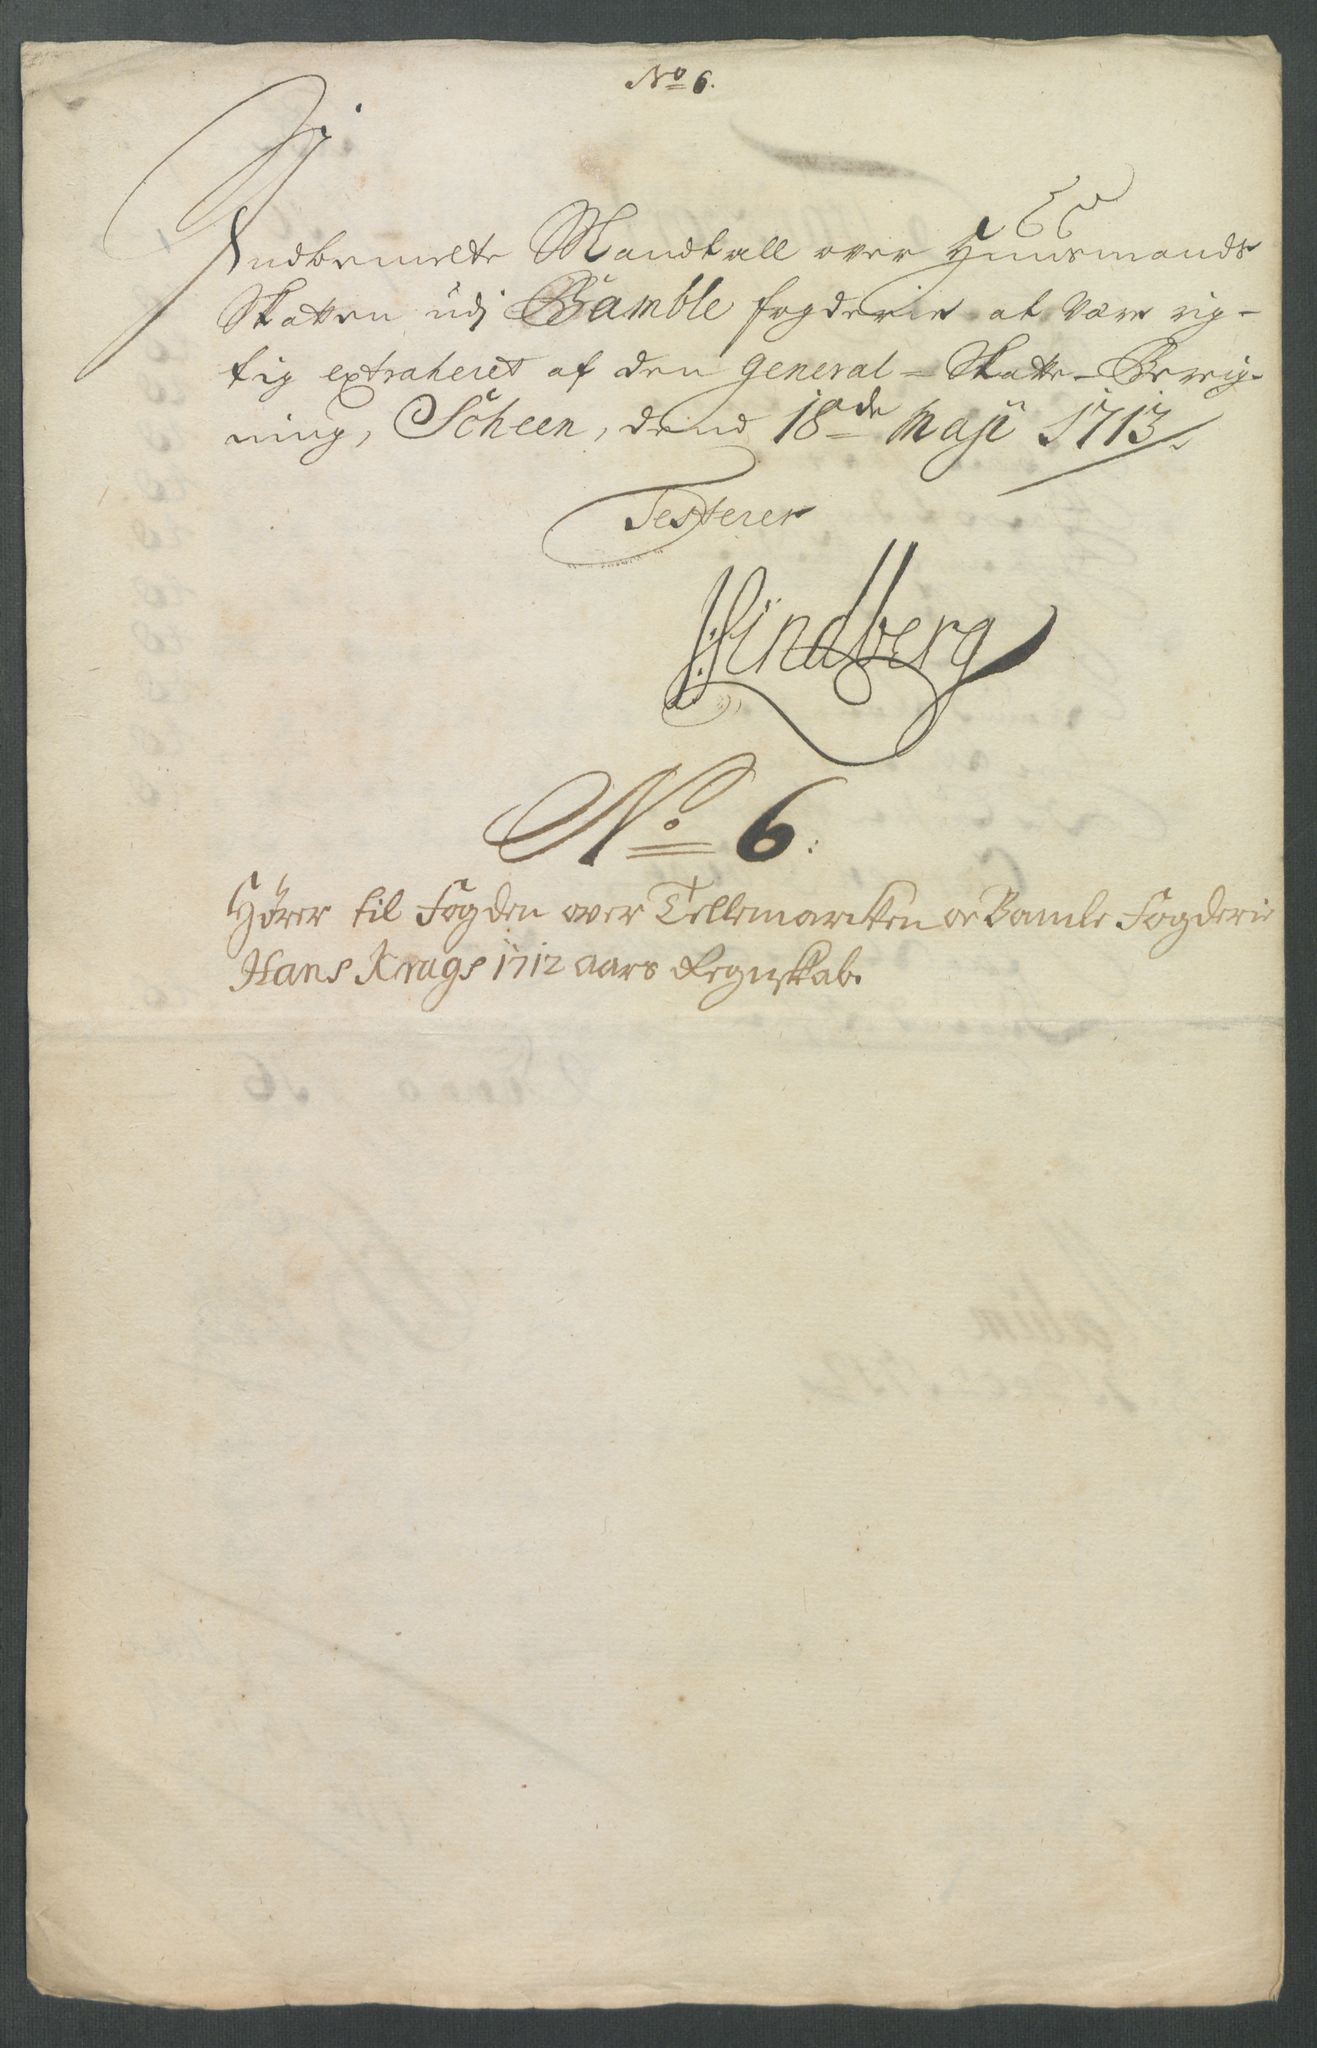 No 6.
Indbemelte Mandtall over Huusmands
Skatten udj Bamble fogderie at være rig-
tig extraheret af den General-Skatte-Bereig-
ning, Scheen, dend 18de Maji 1713.
Testerer
Lindberg
No 6:
Hører til Fogden over Tellemarcken oc Bamle Fogderie
Hans Krags 1712 aars Regnskab.